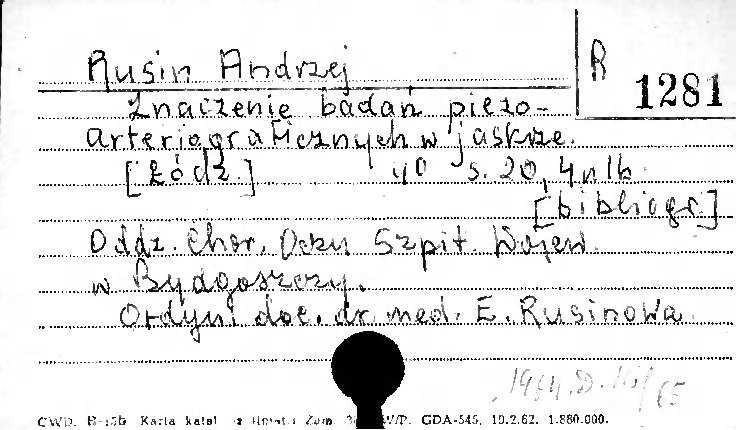 Rusin Andrzej
R 1281
Znaczenie badań piezo-
arteriograficznych w jaskrze.
[Łódź.] 4° s. 20, 4 nlb.
[bibliogr.]
Oddz. Chor. Oczu Szpit. Wojew.
w Bydgoszczy.
Ordyn: doc. dr. med. E. Rusinowa
1964.D.
/65
CWD. Karta katal. GDA-545, 10.2.62. 1.880.000.